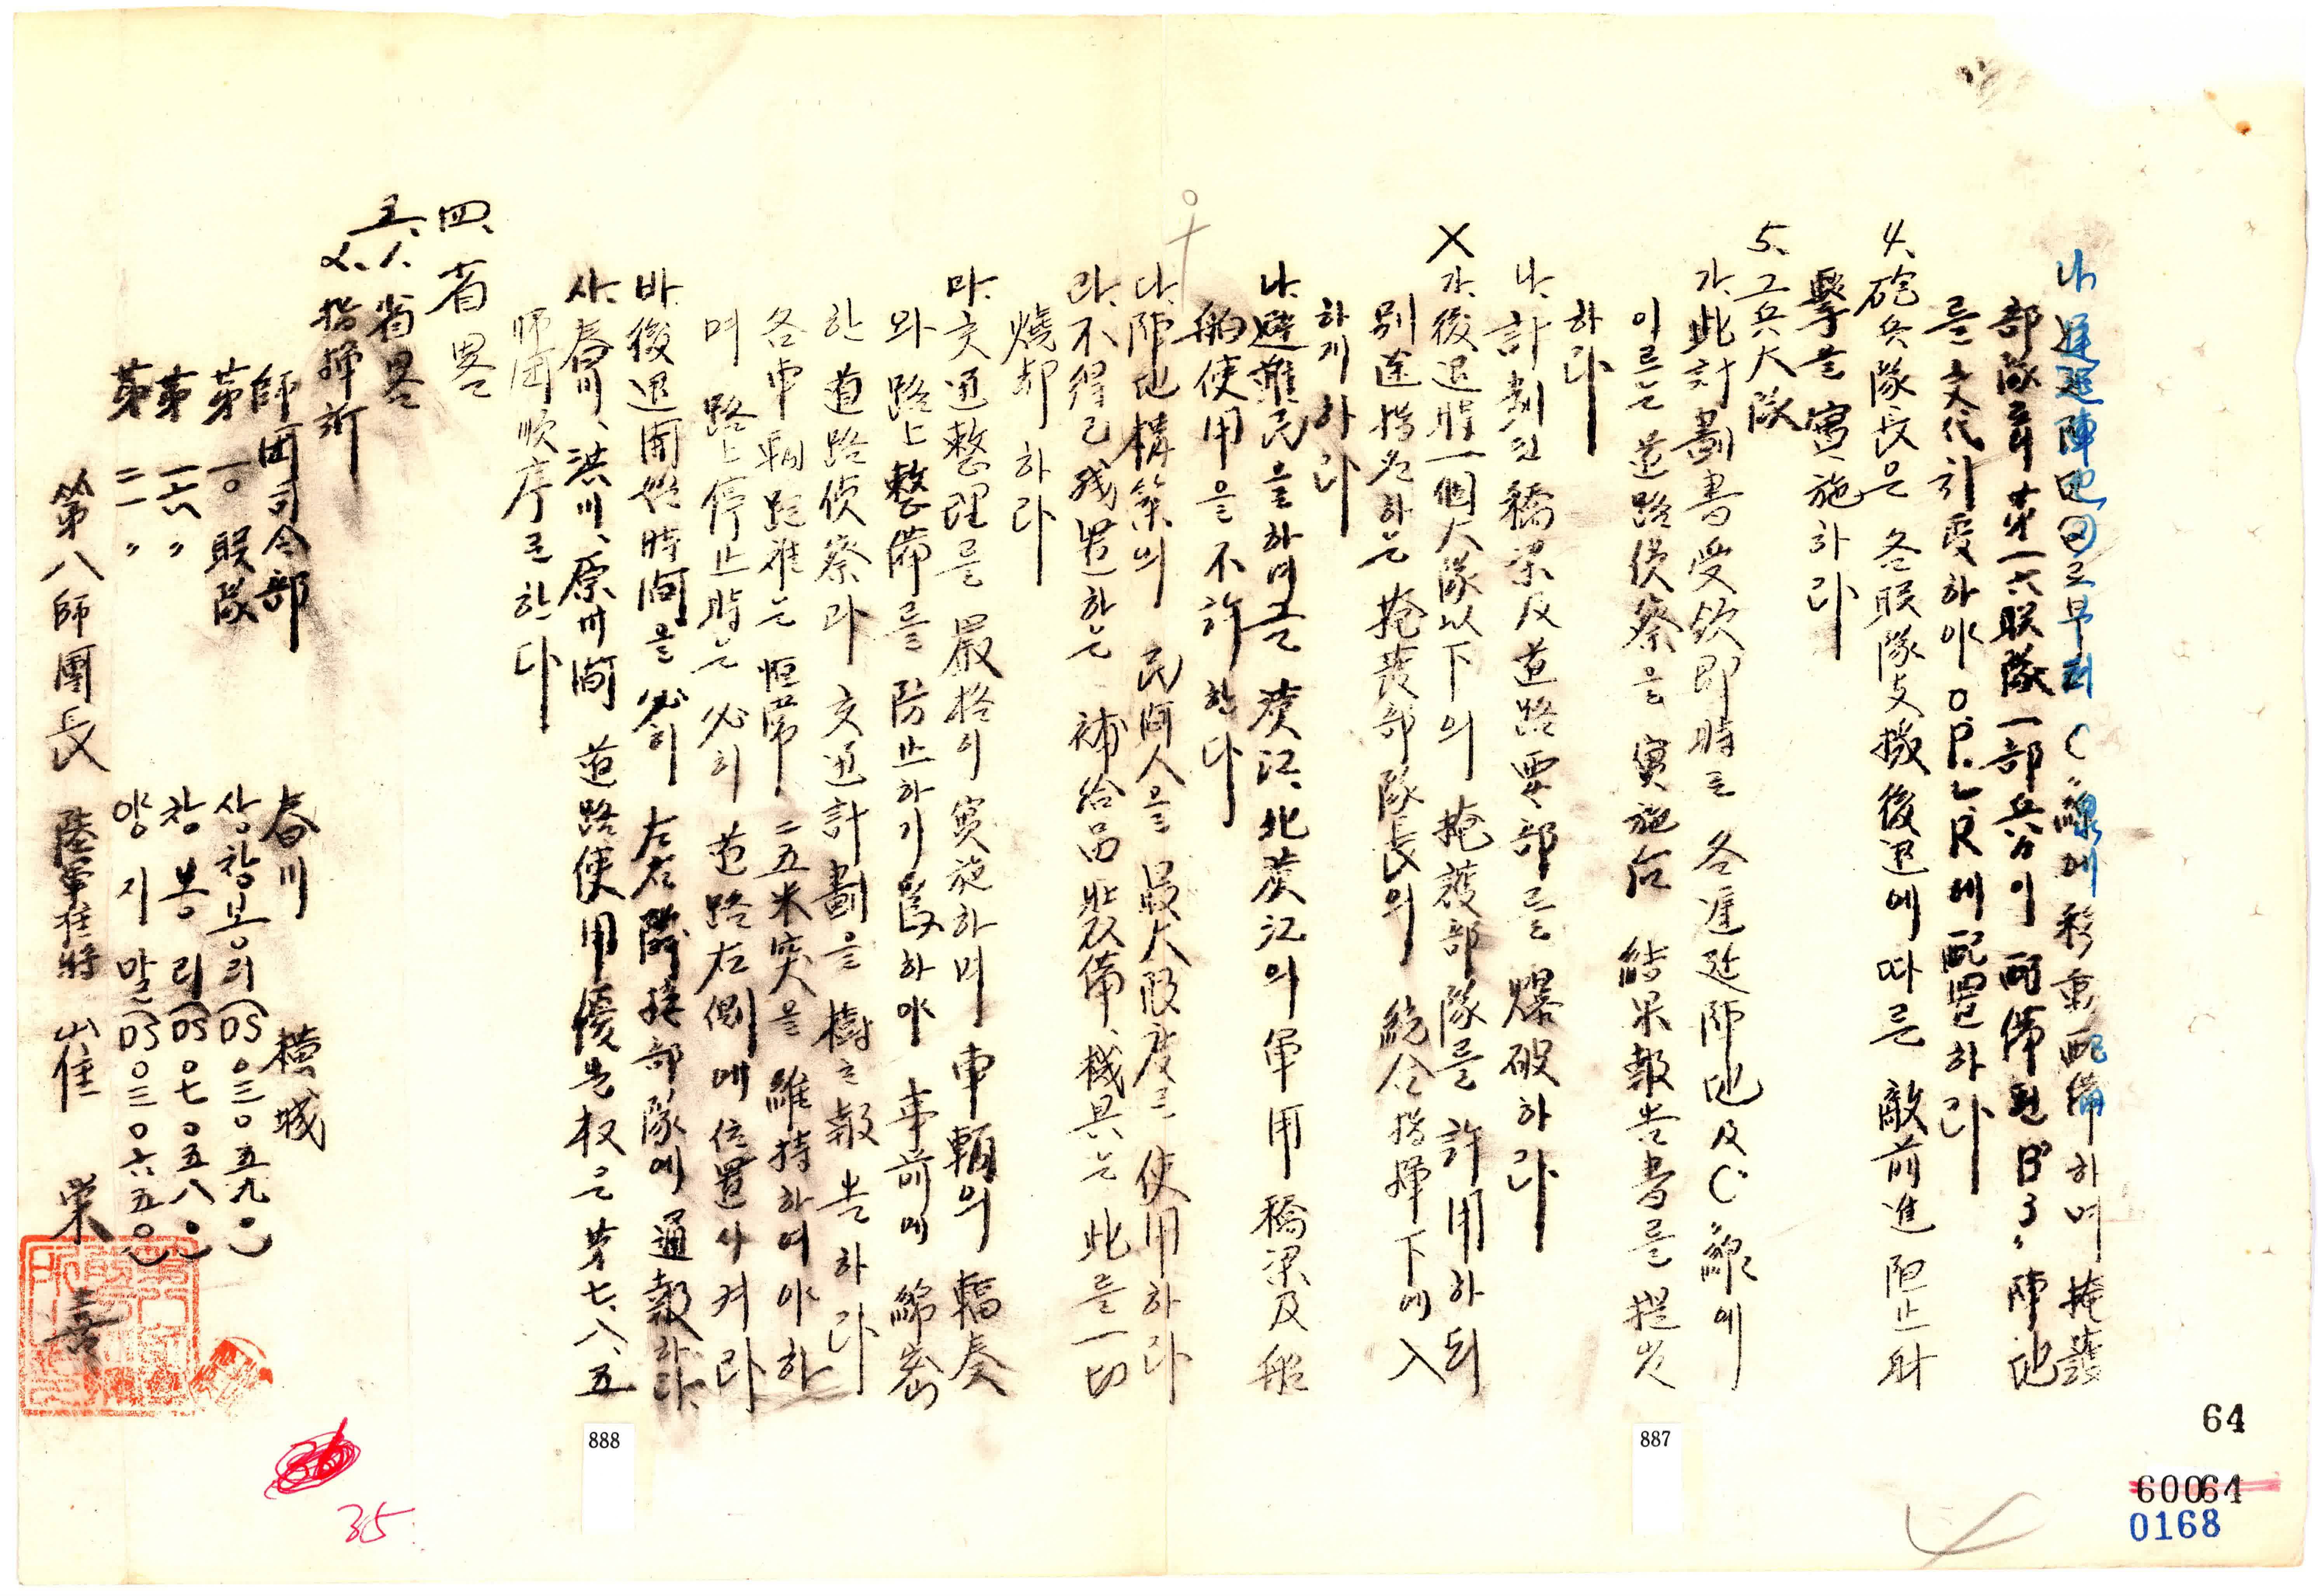 나. 遲延陣地 에 C 線에 移動配備하며 掩護
部隊 第一六聯隊 一部兵力이 配備된 B 3 陣地
를 交代引受하야 O.P.L.R에 配置하라
4. 砲兵隊長은 各聯隊支援後退에 따르는 敵前進阻止射
擊을 實施하라
5. 工兵大隊
가. 此計劃書受領即時로 各遲延陣地及C 線에
이르는 道路偵察을 實施后 結果報告書를 提出
하라
나. 計劃된 橋梁及道路要部를 爆破하라
X 가. 後退時一個大隊以下의 掩護部隊를 許用하되
別途指名하는 掩護部隊長의 統合指揮下에 入
하게하라
나. 避難民을하여금 漢江、北漢江의 軍用橋梁及船
舶使用을 不許한다
다. 陣地構築의 民間人을 最大限度로 使用하라
라. 不得已殘置하는 補給品裝備、機具는 此를 一切
燒却하라
마. 交通整理를 嚴格히 實施하며 車輛의 輻奏
와 路上整備를 防止하기爲하야 事前에 綿密
한 道路偵察과 交通計劃을 樹立報告하라
各車輛距離는 恒常 二五米突을 維持하여야하
며 路上停止時는 必히 道路左側에 位置시켜라
바. 後退開始時間을 必히 左右隣接部隊에 通報하라
사. 春川、洪川、原州間 道路使用優先权은 第七、八、五
師團順序로 한다
四、省畧
五、1. 省畧
2. 指揮所
師團司令部 春川 橫城
第一〇聯隊 상창봉리(DS〇三〇五九〇)
第一六〃 창봉리(DS〇七〇五八〇)
第二一〃 양지말(DS〇三〇六五〇)
第八師團長 陸軍准將 崔 榮 喜
35
888
887
64
60064
0168